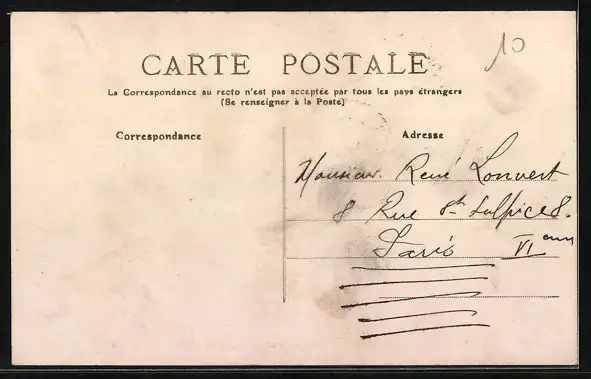 10
CARTE POSTALE
La Correspondance au recto n'est pas acceptée par tous les pays étrangers
(Se renseigner à la Poste)
Correspondance
Adresse
Monsieur René Louvert
8 Rue St Sulpice 8.
Paris VI eme